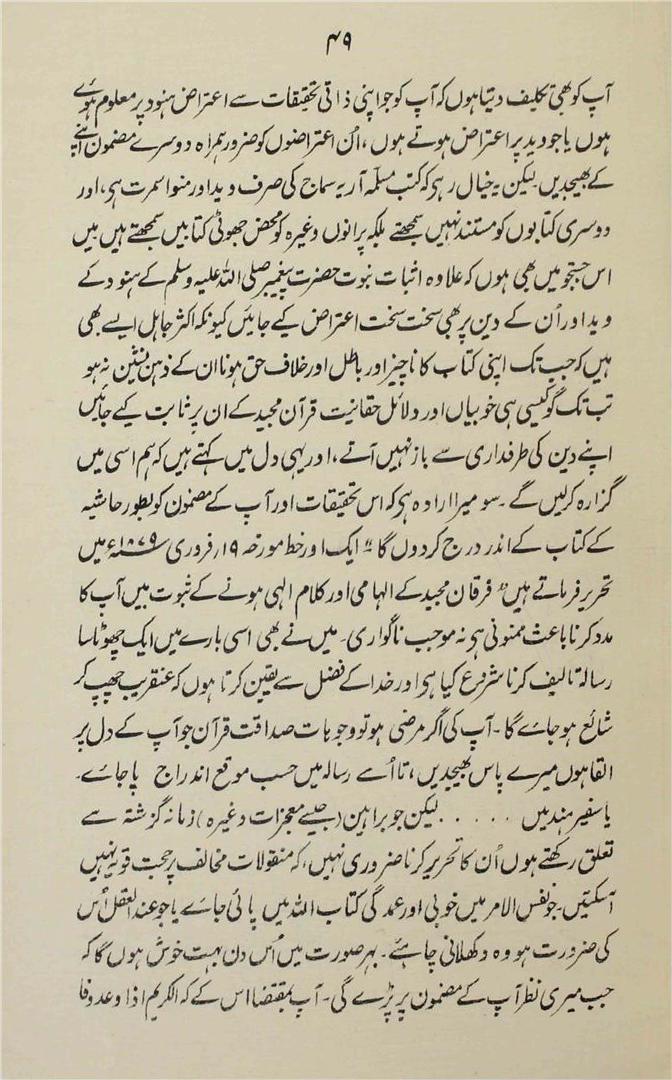 ۴۹
آپ کو بھی تکلیف دیتا ہوں کہ آپ کو جو اپنی ذاتی تحقیقات سے اعتراض ہنود پر معلوم ہوئے
ہوں یا جو دید پر اعتراض ہوتے ہوں ، اُن اعتراضوں کو ضرور ہمراہ دوسرے مضمون اپنے
کے بھیجدیں لیکن یہ خیال رہی کہ کتب مسلّمہ آریہ سماج کی صرف وید اور منو اسمرت ہی ، اور
دوسری کتابوں کو مستند نہیں سمجھتے بلکہ پرانوں وغیرہ کو محض جھوٹی کتابیں سمجھتے ہیں میں
اس جستجو میں بھی ہوں کہ علاوہ اثبات نبوت حضرت پیغمبر صلی اللہ علیہ وسلم کے ہنود کے
وید اور اُن کے دین پر بھی سخت سخت اعتراض کیے جائیں کیونکہ اکثر جاہل ایسے بھی
ہیں کہ جب تک اپنی کتاب کا ناچیز اور باطل اور خلاف حق ہونا ان کے ذہن نشین نہ ہو
تب تک گو کیسی ہی خوبیاں اور دلائل حقانیت قرآن مجید کے ان پر ثابت کیے جائیں
اپنے دین کی طرفداری سے باز نہیں آتے ، اور یہی دل میں کہتے ہیں کہ ہم اسی میں
گزارہ کرلیں گے ۔ سو میرا ارادہ ہی کہ اس تحقیقات اور آپ کے مضمون کو بطور حاشیہ
کے کتاب کے اندر درج کر دوں گا" ایک اور خط مورخہ ۱۹ر فروری ۱۸۷۹ء میں
تحریر فرماتے ہیں" فرقان مجید کے الہامی اور کلام الٰہی ہونے کے ثبوت میں آپ کا
مدد کرنا باعث ممنونی ہی نہ موجب ناگواری ۔ میں نے بھی اسی بارے میں ایک چھوٹا سا
رسالہ تالیف کرنا شروع کیا ہی اور خدا کے فضل سے یقین کرتا ہوں کہ عنقریب چھپ کر
شائع ہو جائے گا ۔ آپ کی اگر مرضی ہو تو وجوہات صداقت قرآن جو آپ کے دل پر
القا ہوں میرے پاس بھیجدیں ، تا اُسے رسالہ میں حسب موقع اندراج پا جائے ۔
یا سفیر ہند میں ..... لیکن جو براہین (جیسے معجزات وغیرہ) زمانہ گزشتہ سے
تعلق رکھتے ہوں اُن کا تحریر کرنا ضروری نہیں ، کہ منقولات مخالف پر حجت قویہ نہیں
آسکتیں ۔ جو نفس الامر میں خوبی اور عمدگی کتاب اللہ میں پائی جائے یا جو عند العقل اُس
کی ضرورت ہو وہ دکھلانی چاہئے ۔ بہر صورت میں اُس دن بہت خوش ہوں گا کہ
جب میری نظر آپ کے مضمون پر پڑے گی ۔ آپ بمقتضا اس کے کہ الکریم اذا وعد وفا